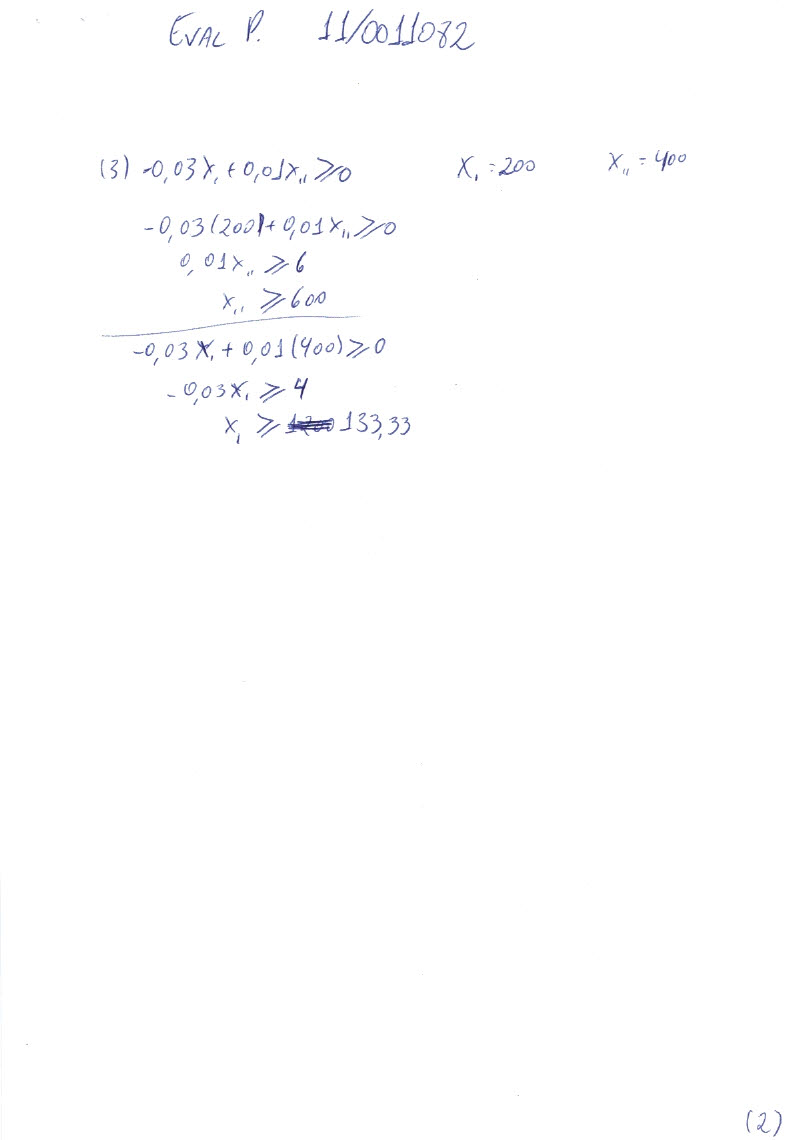 EVAL P. 11/0011082
(3) -0,03x₁ + 0,01x₁₁ ⩾ 0 x₁ = 200 x₁₁ = 400
-0,03(200) + 0,01x₁₁ ⩾ 0
0,01x₁₁ ⩾ 6
x₁₁ ⩾ 600
-0,03x₁ + 0,01(400) ⩾ 0
-0,03x₁ ⩾ 4
x₁ ⩾ 133,33
(2)